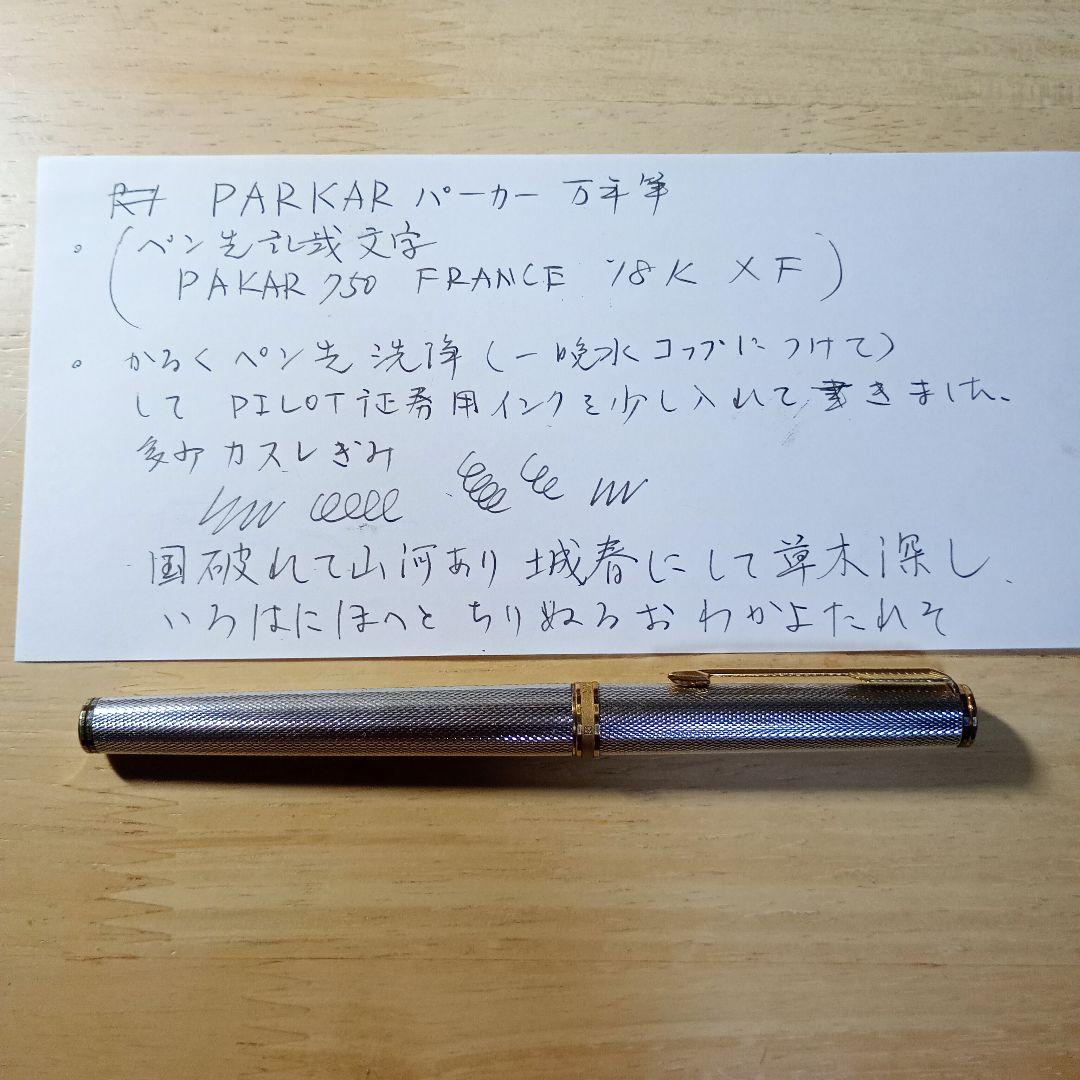 PARKAR パーカー 万年筆
。(ペン先記載文字
PAKAR 750 FRANCE 18K XF)
。かるくペン先洗浄(一晩水コップにつけて)
して PILOT証券用インクを少し入れて書きました、
多少カスレぎみ
国破れて山河あり 城春にして草木深し、
いろはにほへと ちりぬるお わかよたれそ